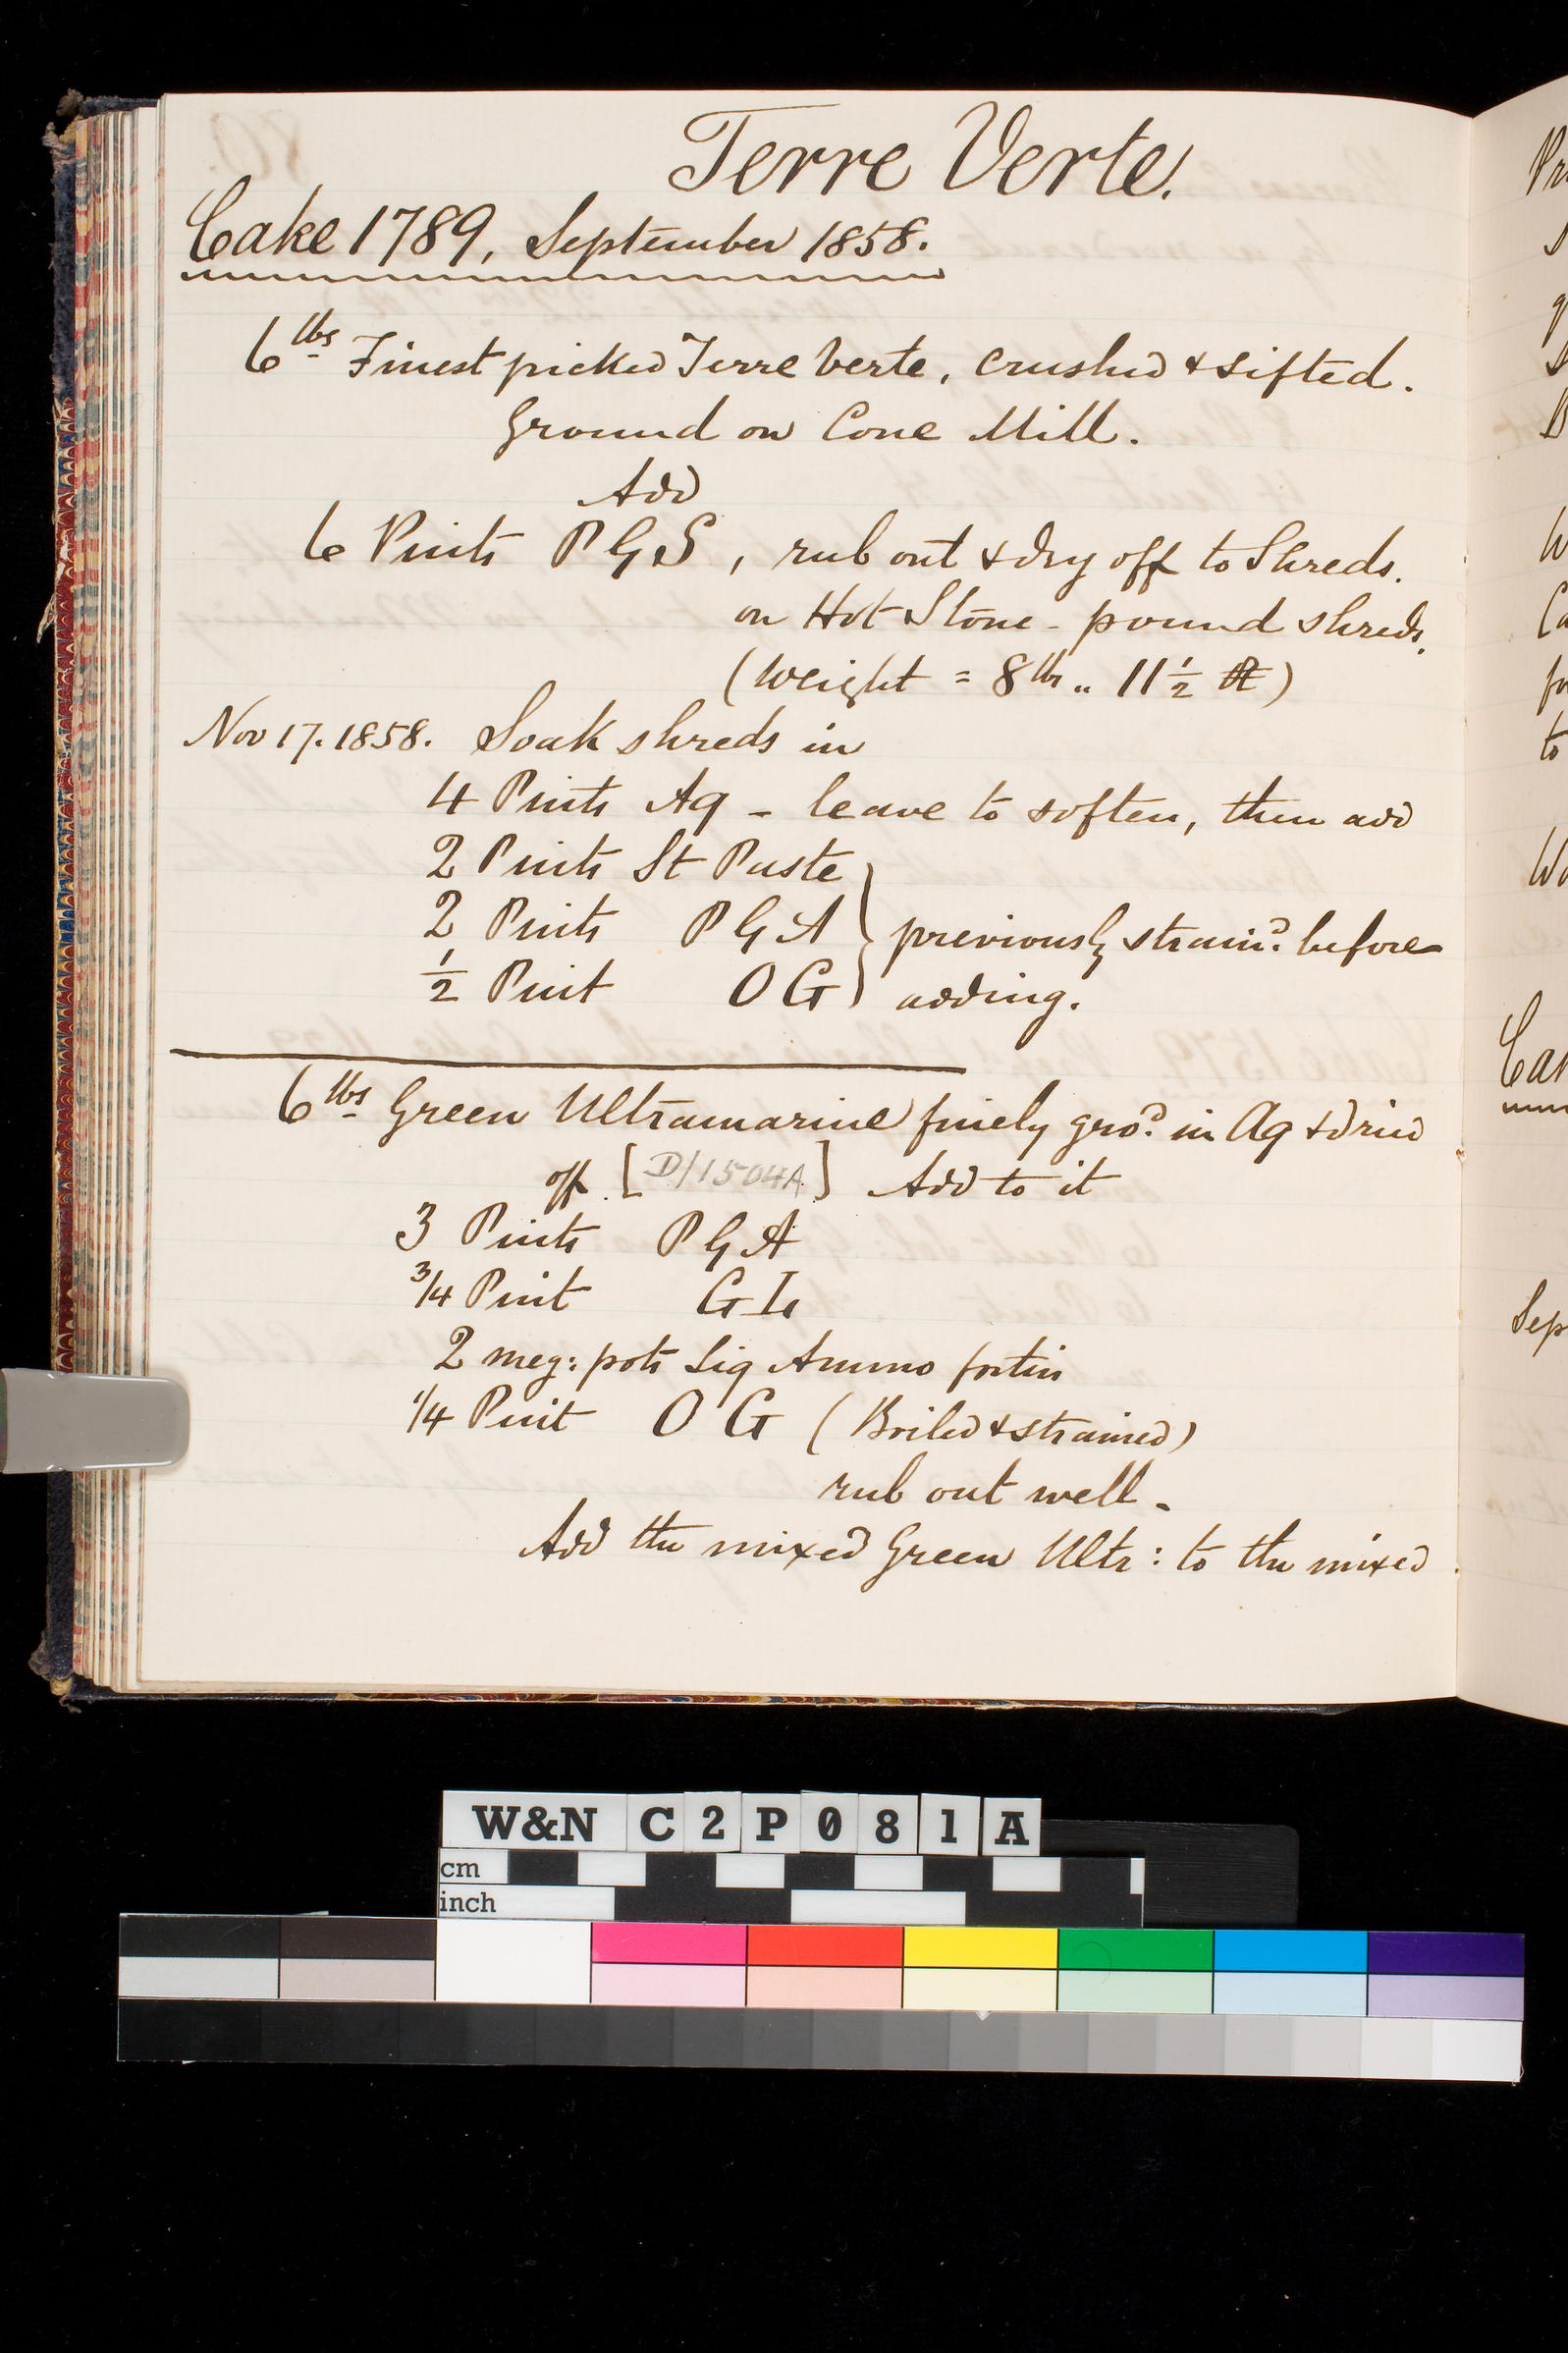 Terre Verte.
Cake 1789, September 1858.
6 lbs Finest picked Terre Verte, crushed & sifted.
Ground on Cone Mill.
Add
6 Pints P G S, rub out & dry off to Shreds.
on Hot Stone - pound shreds.
(Weight = 8 lbs .. 11 1/2
Nov 17. 1858. Soak shreds in
4 Pints Aq - leave to soften, then add
2 Pints St Paste
2 Pints P G A } previously strain'd before
1/2 Pint O G adding.
6 lbs Green Ultramarine finely gro'd in Aq & dried
off. [D/1504A] Add to it
3 Pints P G A
3/4 Pint G L
2 meg: pots Liq Ammo fortis
1/4 Pint O G (Boiled & strained)
rub out well -
Add the mixed Green Ultr: to the mixed
W&N C2P081A
cm
inch